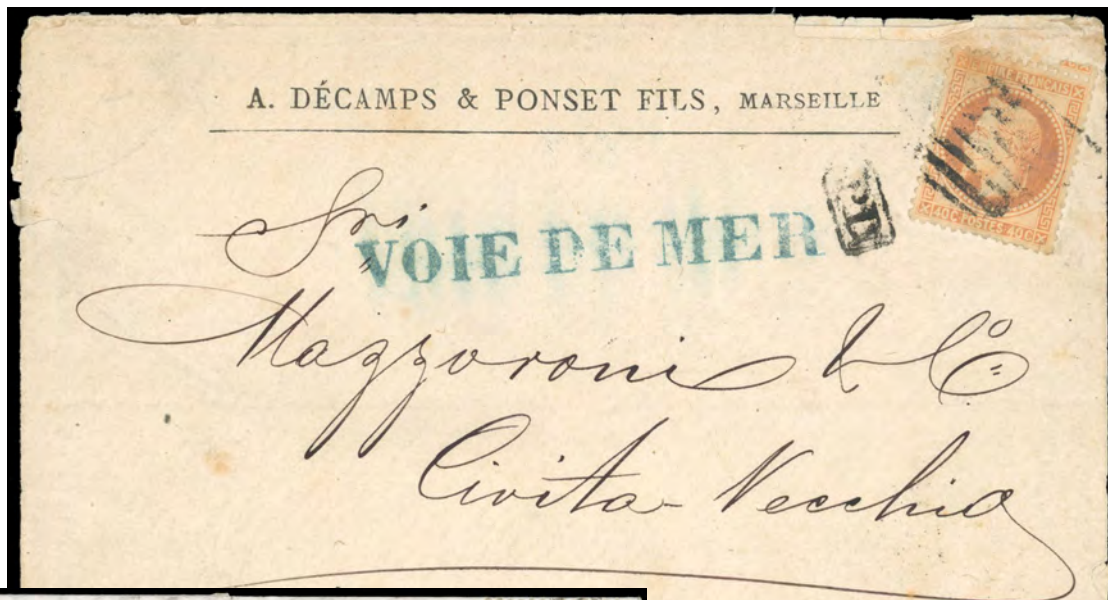 A. DÉCAMPS & PONSET FILS, MARSEILLE
EMPIRE FRANÇAIS
40 C POSTES 40 C
PD
Sri
VOIE DE MER
Mazzaroni & Cº
Civita-Vecchia